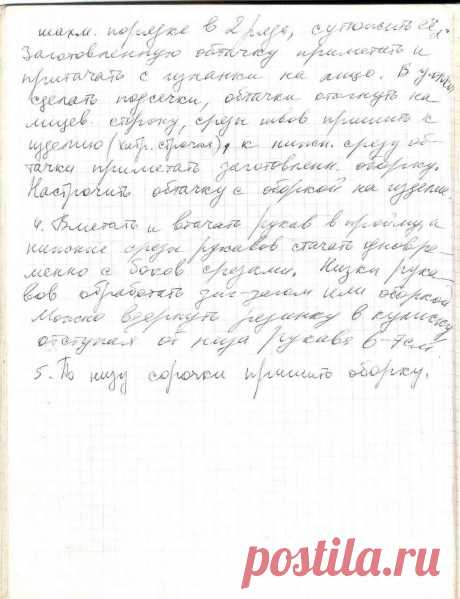 шахм. порядке в 2 ряда, сутюжить её.
Заготовленную обтачку приметать и
притачать с изнанки на лицо. В углах
сделать подсечки, обтачки отогнуть на
лицев. сторону, срезы швов пришить к
изделию (хитр. строчка), к нижн. срезу об-
тачки приметать заготовленн. оборку.
Настрочить обтачку с оборкой на изделие.
4. Вметать и втачать рукав в пройму, и
нижние срезы рукавов стачать одновре-
менно с боков. срезами. Низки рука-
вов обработать зиг-загом или оборкой
Можно вдернуть резинку в кулиску
отступая от низа рукава 6-7см
5. По низу сорочки пришить оборку.
postila.ru